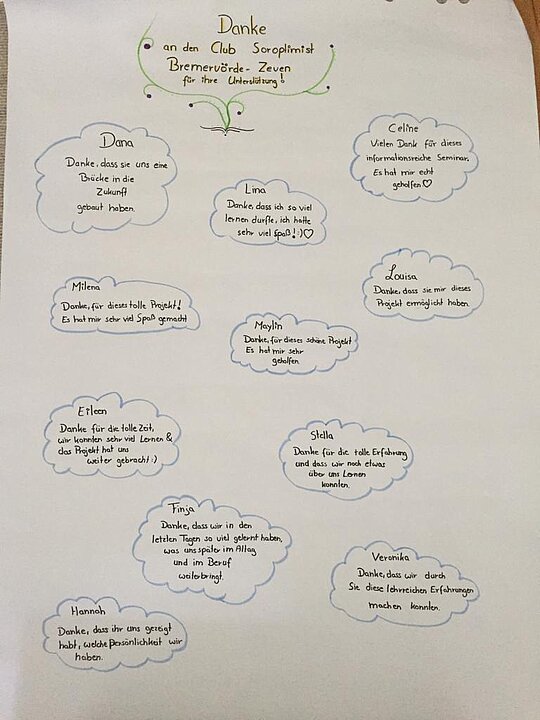 Danke
an den Club Soroptimist
Bremervörde - Zeven
für ihre Unterstützung!
Dana
Danke, dass sie uns eine
Brücke in die
Zukunft
gebaut haben.
Celine
Vielen Dank für dieses
informationsreiche Seminar.
Es hat mir echt
geholfen ♡
Lina
Danke, dass ich so viel
lernen durfte, ich hatte
sehr viel Spaß! :) ♡
Louisa
Danke, dass sie mir dieses
Projekt ermöglicht haben.
Milena
Danke, für dieses tolle Projekt!
Es hat mir sehr viel Spaß gemacht
Maylin
Danke, für dieses schöne Projekt
Es hat mir sehr
geholfen.
Eileen
Danke für die tolle Zeit,
wir konnten sehr viel Lernen &
das Projekt hat uns
weiter gebracht :)
Stella
Danke für die tolle Erfahrung
und dass wir noch etwas
über uns Lernen
konnten.
Finja
Danke, dass wir in den
letzten Tagen so viel gelernt haben,
was uns später im Alltag
und im Beruf
weiterbringt.
Veronika
Danke, dass wir durch
Sie diese lehrreichen Erfahrungen
machen konnten.
Hannah
Danke, dass ihr uns gezeigt
habt, welche Persönlichkeit wir
haben.